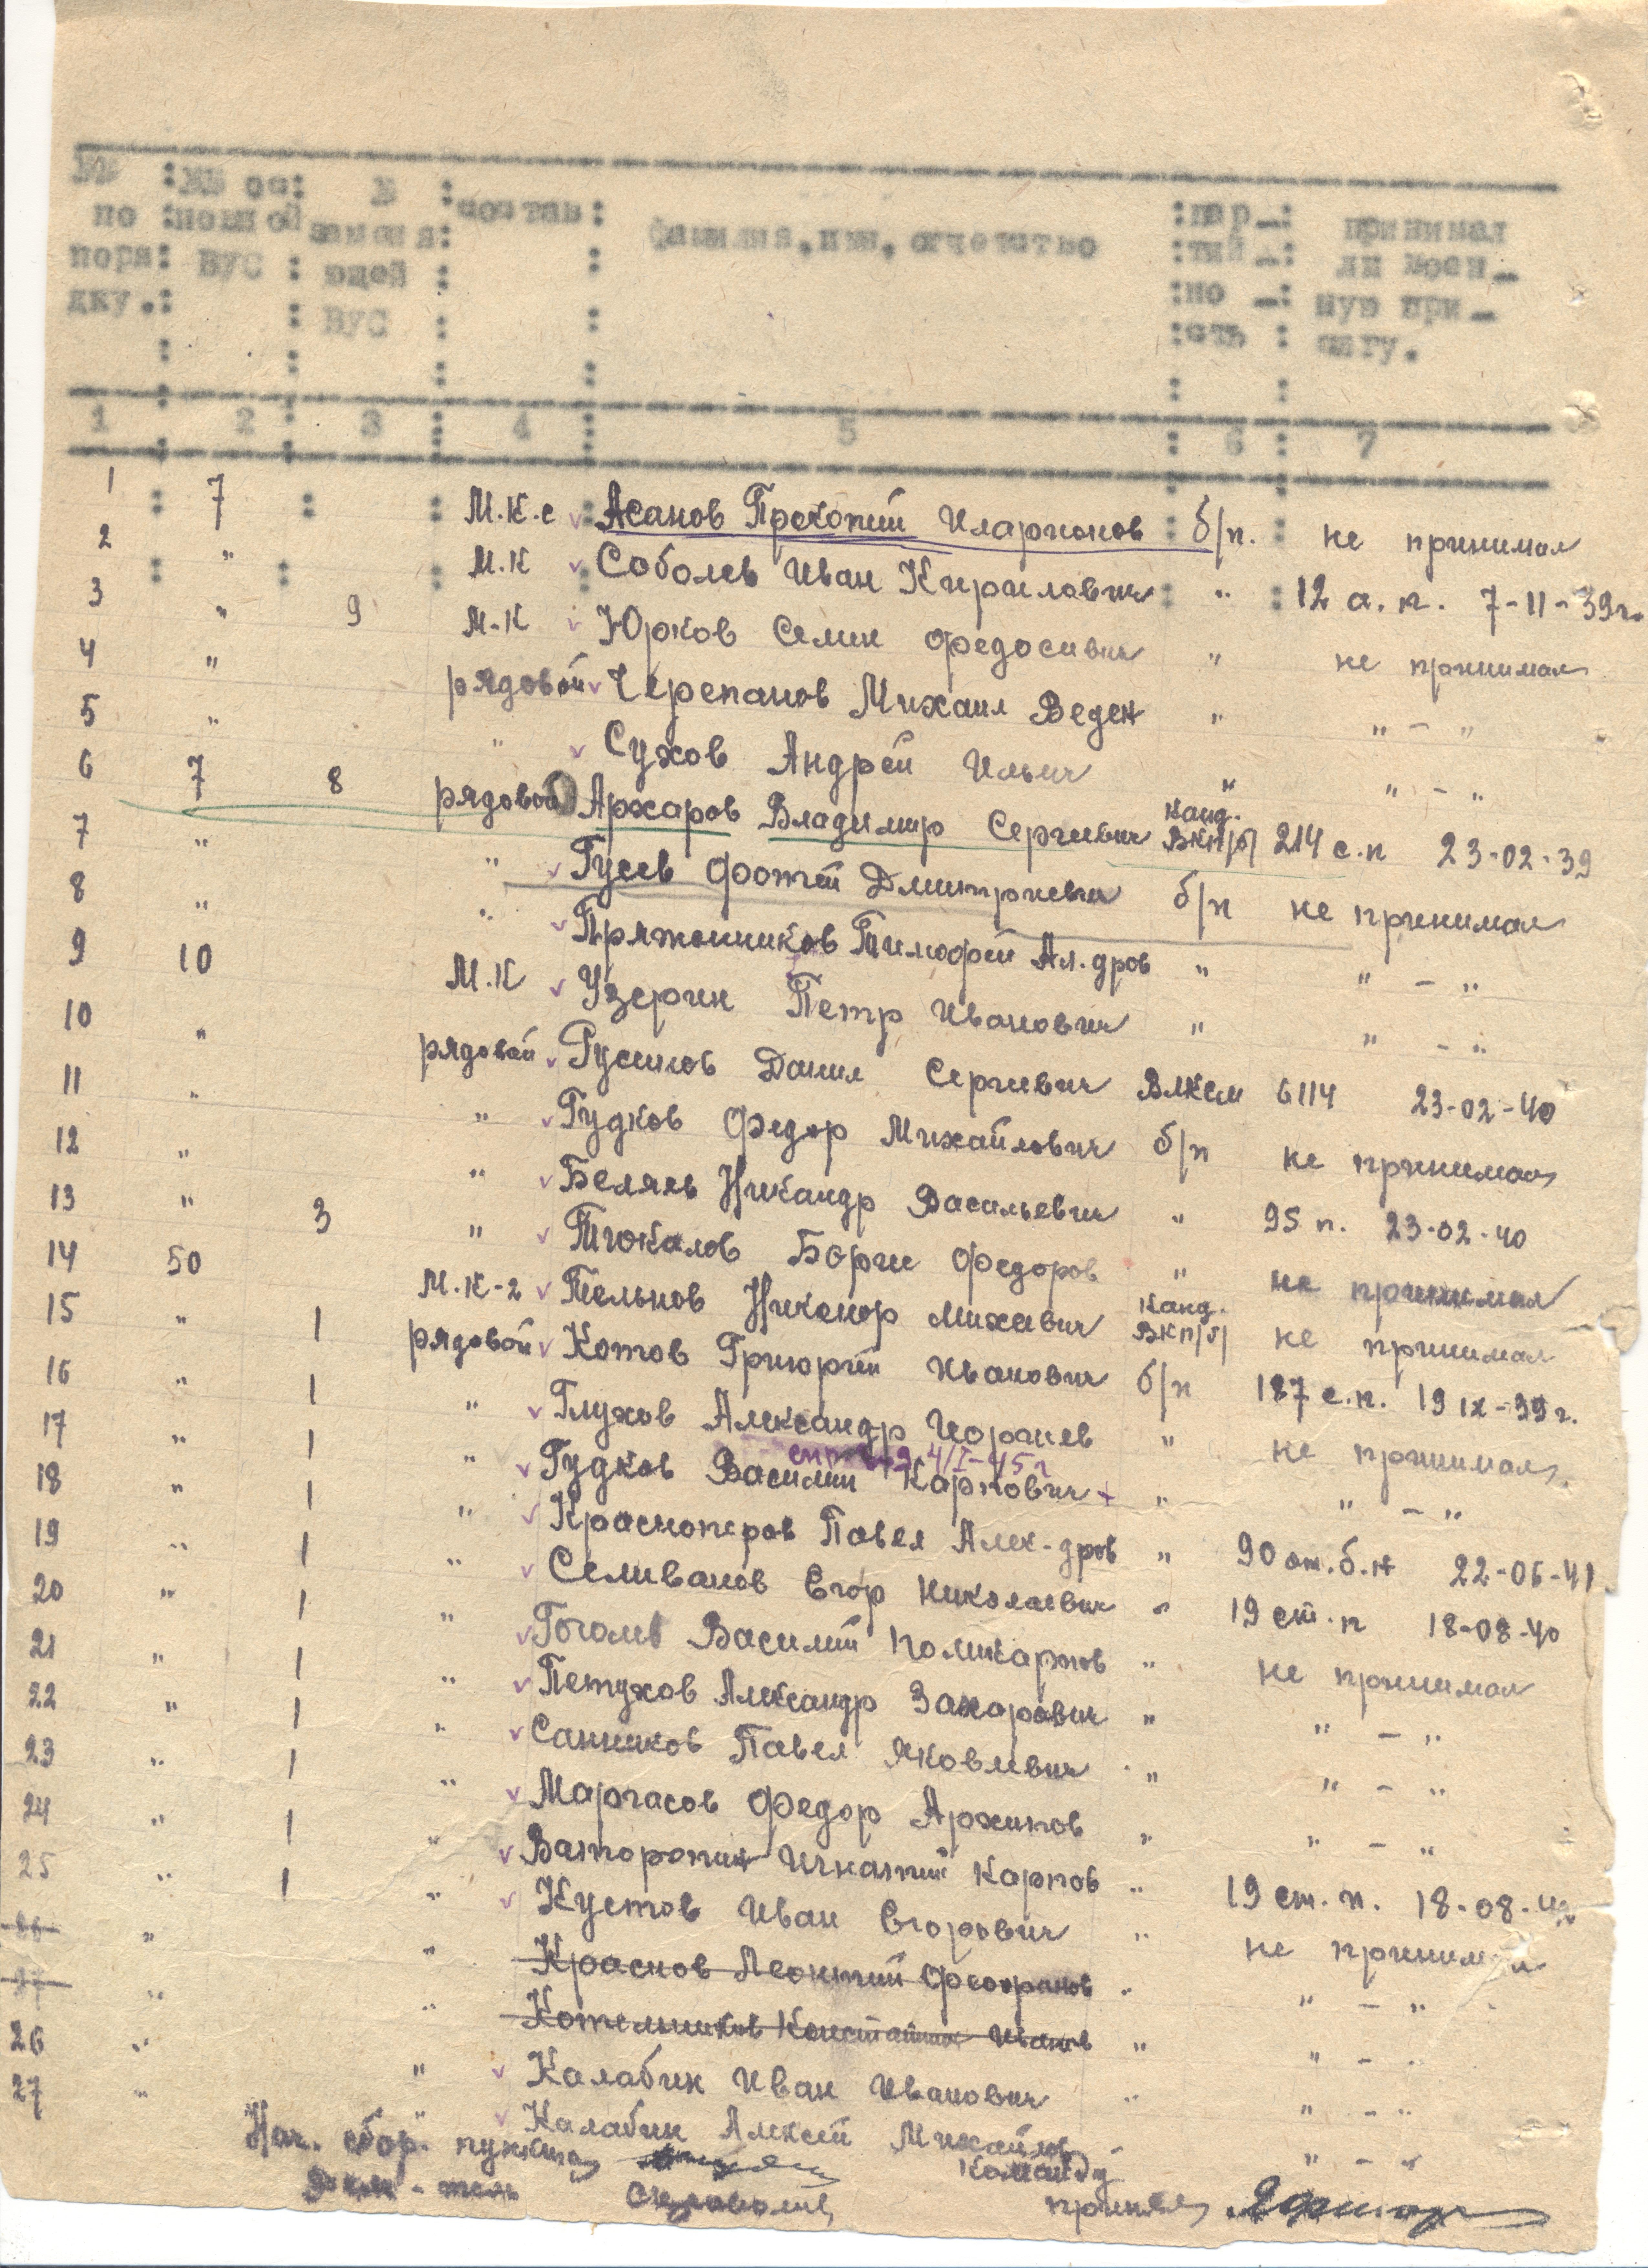 №№ : №№ ос: № : состав : фамилия, имя, отчество : пар-: принимал
по : новной заменя: : тий-: ли воен-
поря: ВУС : ющей : : но -: ную при-
дку.: : ВУС : : сть : сягу.
1 : 2 : 3 : 4 : 5 : 6 : 7
1 7 М.К.с Асанов Прокопий Иларионов б/п. не принимал
2 " М.К Соболев Иван Кирилович " 12 а.п. 7-11-39г.
3 " 9 М.К Юрков Семен Федосивич " не принимал
4 " рядовой Черепанов Михаил Веден " " - "
5 " " Сухов Андрей Ильич " " - "
6 7 8 рядовой Архаров Владимир Сергиевич Канд. ВКП/б/ 214 с.п 23-02-39
7 " " Гусев Фотей Дмитриевич б/п не принимал
8 " " Пряжонников Тимофей Ал.дров " " - "
9 10 М.К Узерин Петр Иванович " " - "
10 " рядовой Русинов Данил Сергиевич ВЛКСМ 6114 23-02-40
11 " " Гудков Федор Михайлович б/п не принимал
12 " " Беляев Никандр Васильевич " 95 п. 23-02-40
13 " 3 " Тюкалов Борис Федоров " не принимал
14 50 М.К-2 Тельнов Никонор Михаевич Канд. ВКП/б/ не принимал
15 " 1 рядовой Котов Григорий Иванович б/п 187 с.п. 19 IX-39 г.
16 " 1 " Глухов Александр Игоргиев " не принимал
4/I-45г
17 " 1 " Гудков Василий Карпович " " - "
18 " 1 " Красноперов Павел Алек-дров " 90 от.б.н 22-06-41
19 " 1 " Селиванов Егор Николаевич " 19 ст.п 18-08-40
20 " 1 " Гоголев Василий Поликарпов " не принимал
21 " 1 " Петухов Александр Захарович " " - "
22 " 1 " Санников Павел Яковлевич " " - "
23 " 1 " Маргасов Федор Архипов " " - "
24 " 1 " Ваторопин Игнатий Карпов " 19 ст.п. 18-08-40
25 " 1 " Кустов Иван Егорович " не принимал
26 " " Краснов Леонтий Феофанов " " - "
27 " " Котельников Константин Иванов " " - "
26 " " Калабин Иван Иванович " " - "
27 " " Калабин Алексей Михайлов " " - "
Нач. сбор. пункта Команду
принял